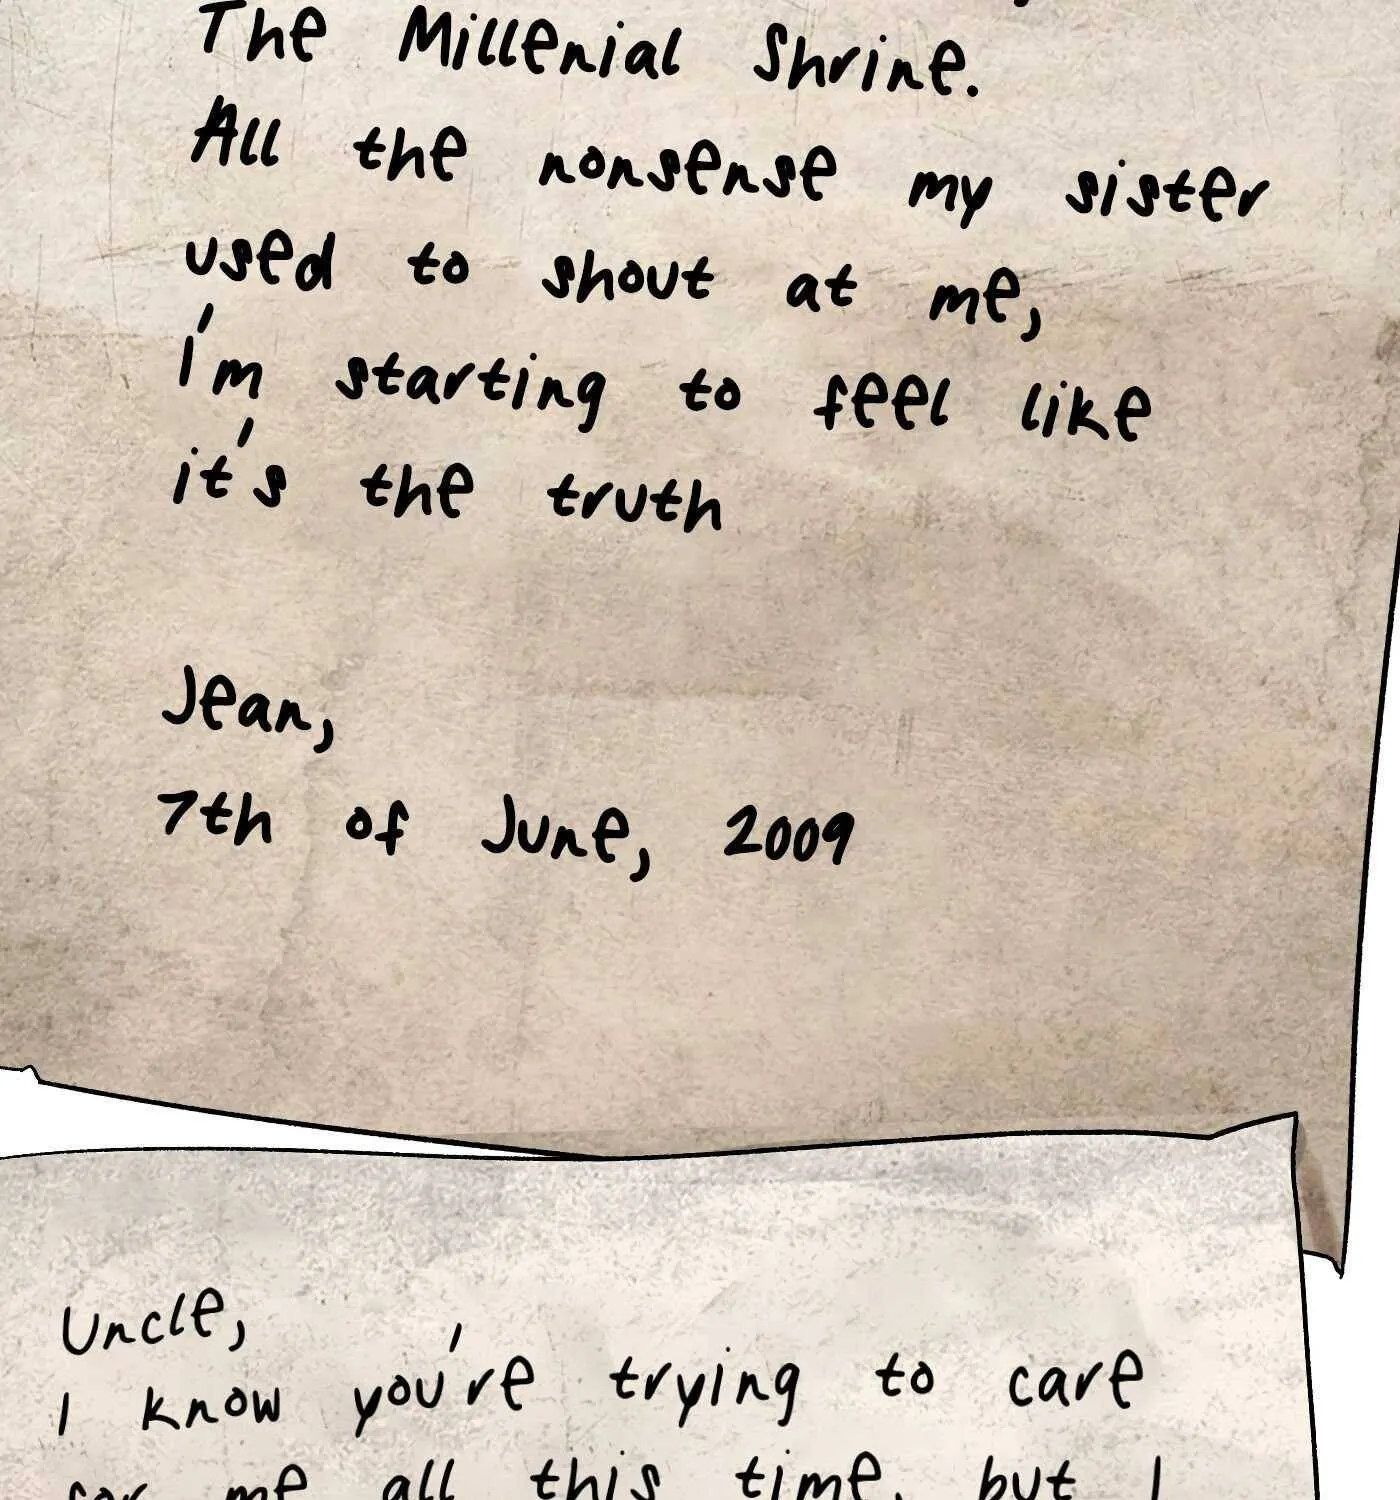 The Millenial Shrine.
All the nonsense my sister
used to shout at me,
I'm starting to feel like
it's the truth
Jean,
7th of June, 2009
Uncle,
I know you're trying to care
for me all this time, but I